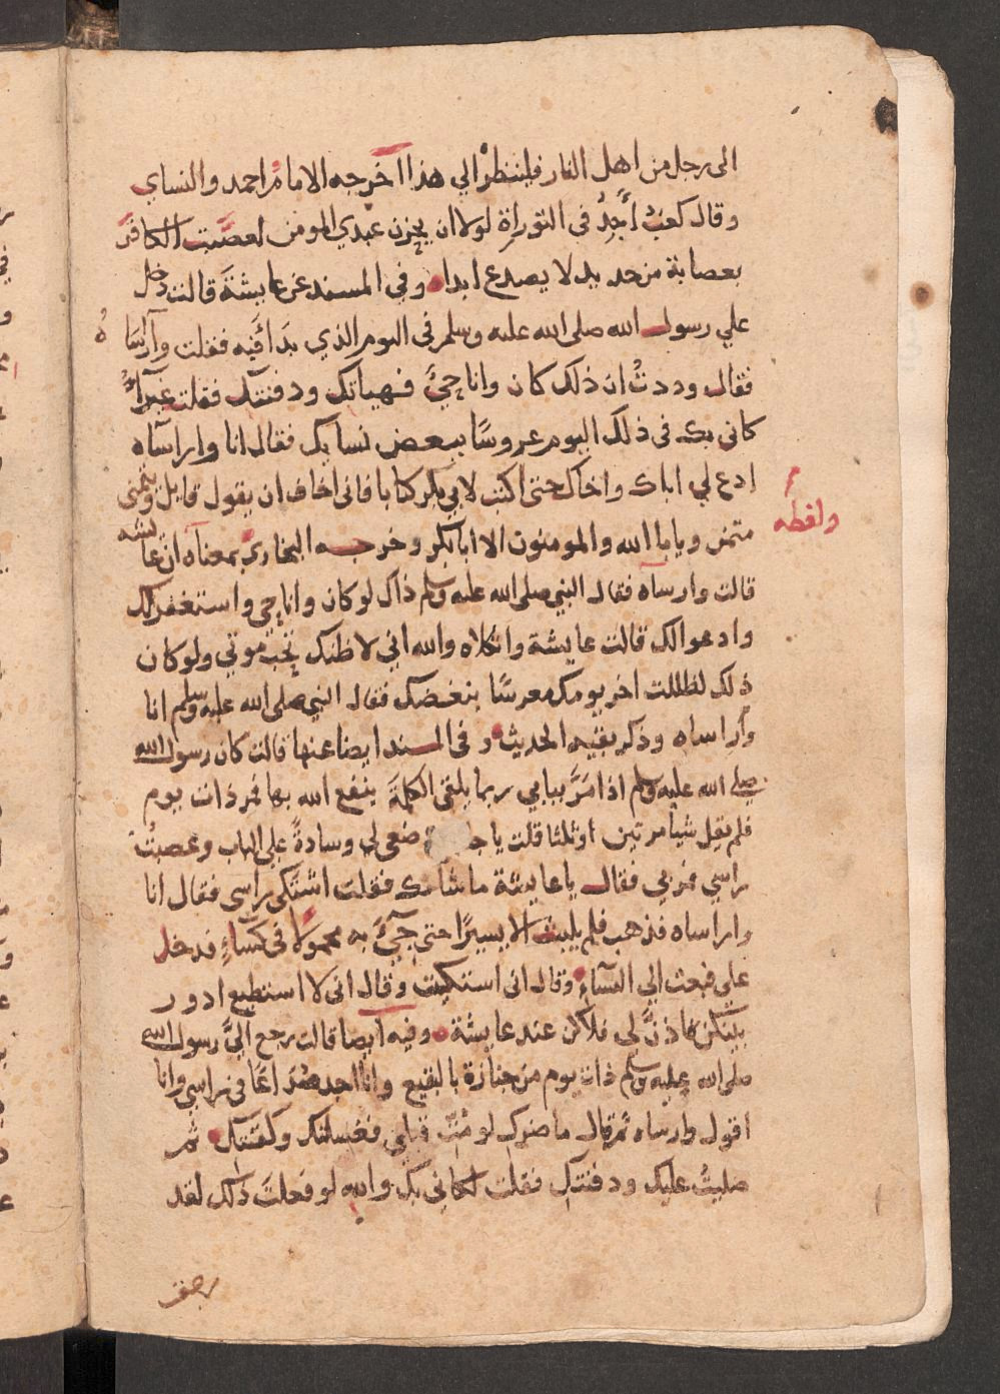 الى رجل من اهل النار فلينظر الي هذا اخرجه الامام احمد والنساي
وقال كعب اَجِدُ في التوراة لولا ان يحزن عبدي المومن لعصبت الكافر
بعصابة من حديد لا يصدع ابدا وفي المسند عن عايشة قالت دخل
علي رسول الله صلى الله عليه وسلم في اليوم الذي بدا فيه فقلت واراسا
ه
فقال وددتُ ان ذلك كان وانا حيٌ فهياتك ودفنتك فقلت غيرا
كاني بك في ذلك اليوم عروسًا ببعض نسايك فقال انا واراساه
ادع لي اباك واخاك حتى اكتب لابي بكر كتابا فاني اخاف ان يقول قايل ويتمنى
متمن ويابا الله والمومنون الا ابا بكر وخرجه البخاري بمعناه ان عايشه
ولفظه
قالت وارساه فقال النبي صلى الله عليه وسلم ذاك لو كان وانا حي واستغفر لك
وادعوا لك قالت عايشة واثكلاه والله اني لاظنك تحب موتي ولو كان
ذلك لظللت اخر يومك معرسًا ببعض فقال النبي صلى الله عليه وسلم انا
واراساه وذكر بقيه الحديث وفي المسند ايضا عنها قالت كان رسول الله
صلى الله عليه وسلم اذا مَرَّ ببابي ربما يلقى الكلمةَ ينفع الله بها فمر ذات يوم
فلم يقل شيا مرتين او ثلثا قلت يا ضعي لي وسادةً على الباب وعصبتُ
راسي فمر بي فقال يا عايشة ما شانك فقلت اشتكى راسي فقال انا
واراساه فذهب فلم يلبث الا يسيرًا حتى جيءَ به محمولًا في كساءٍ فدخل
علي فبعث الي النساءِ وقال انى استكيت وقال انى لا استطيع ادور
بينكن فاذنَّ لى فلاكن عند عايشة وفيه ايضا قالت رجع اليَّ رسول الله
صلى الله عليه وسلم ذات يوم من جنازة بالبقيع وانا اجد صداعًا في راسي وانا
اقول وارساه ثم قال ما ضرك لو مُتِّ قبلي فغسلتك وكفنتك ثم
صليتُ عليك ودفنتك فقلت لكاني بك والله لو فعلتَ ذلك لقد
رجعت